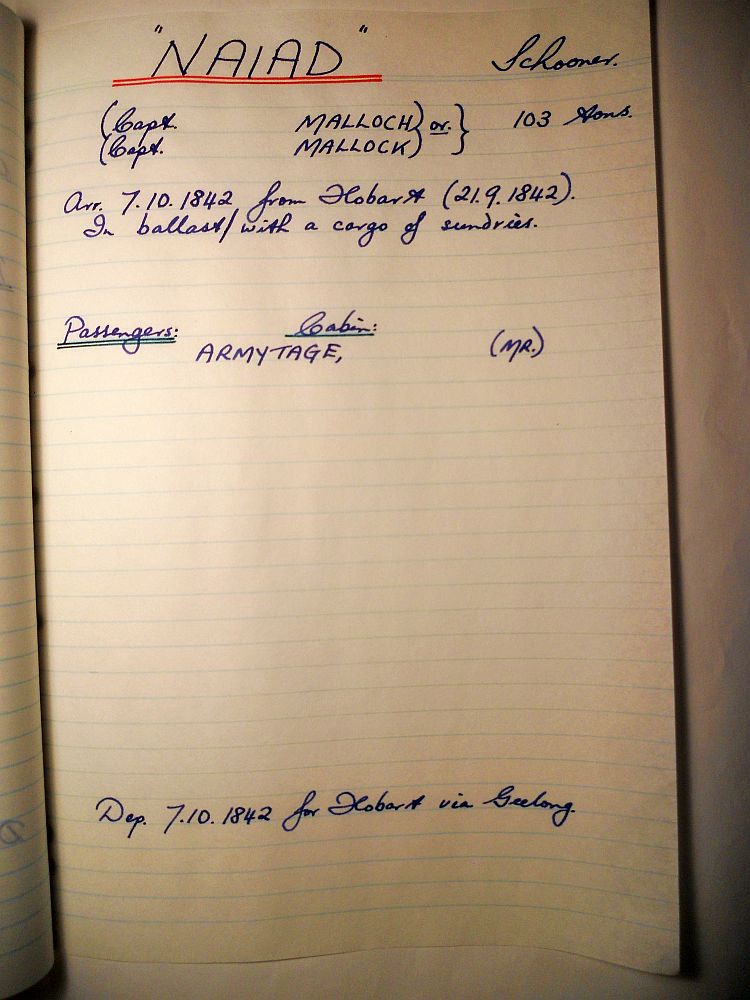 "NAIAD" Schooner.
(Capt. MALLOCH) or. } 103 tons.
(Capt. MALLOCK)
Arr. 7.10.1842 from Hobart (21.9.1842).
In ballast/with a cargo of sundries.
Passengers: Cabin:
ARMYTAGE, (MR.)
Dep. 7.10.1842 for Hobart via Geelong.